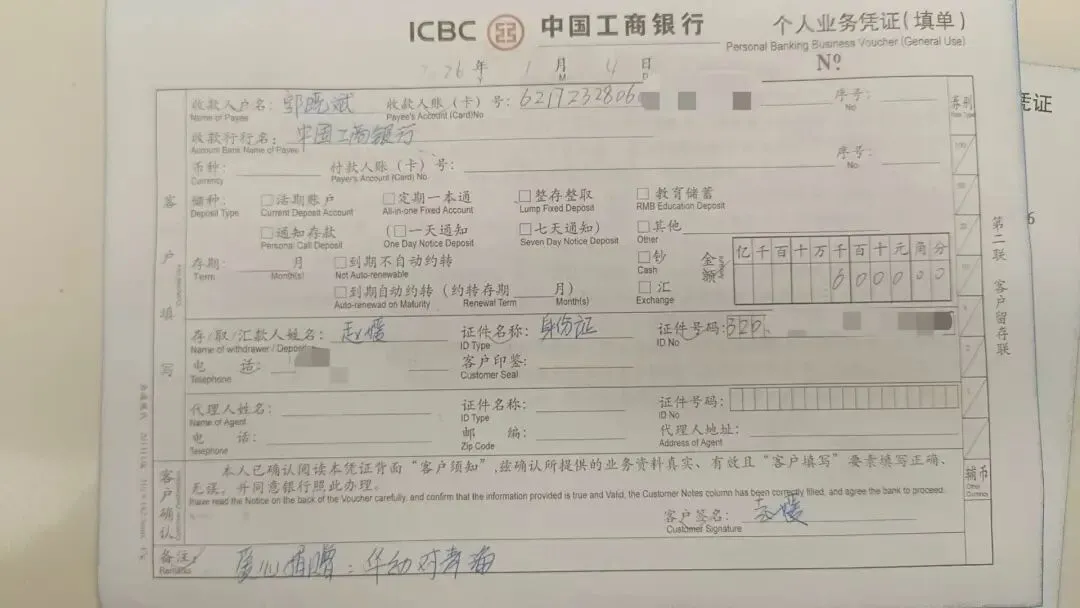 ICBC 中国工商银行 个人业务凭证(填单)
Personal Banking Business Voucher (General Use)
2026 年 1 月 4 日 Nº
Y M D
收款人户名: 郭晓斌 收款人账(卡)号: 6217232806 序号:
Name of Payee Payee's Account (Card)No No
收款行行名: 中国工商银行
Account Bank Name of Payee
币种: 付款人账(卡)号: 序号:
Currency Payer's Account (Card) No. No
储种: 活期账户 定期一本通 整存整取 教育储蓄
Deposit Type Current Deposit Account All-in-one Fixed Account Lump Fixed Deposit RMB Education Deposit
通知存款 (一天通知 七天通知) 其他
Personal Call Deposit One Day Notice Deposit Seven Day Notice Deposit Other
存期: 月 到期不自动约转 钞 金额 亿千百十万千百十元角分
Term Month(s) Not Auto-renewable Cash 600000
到期自动约转(约转存期 月) 汇
Auto-renewed on Maturity Renewal Term Month(s) Exchange
存/取/汇款人姓名: 赵媛 证件名称: 身份证 证件号码: 320
Name of withdrawer / ID Type ID No
电 话: 客户印鉴:
Telephone Customer Seal
代理人姓名: 证件名称: 证件号码:
Name of Agent ID Type ID No
电 话: 邮 编: 代理人地址:
Telephone Zip Code Address of Agent
本人已确认阅读本凭证背面“客户须知”,兹确认所提供的业务资料真实、有效且“客户填写”要素填写正确、
无误,并同意银行照此办理。
I have read the Notice on the back of the Voucher carefully, and confirm that the information provided is true and Valid, the Customer Notes column has been correctly filled, and agree the bank to proceed.
客户签名: 赵媛
Customer Signature
备注: 爱心捐赠:华幼对青海
Remarks
客户填写
客户确认
第二联 客户留存联
辅币
Other Currency
凭证
6